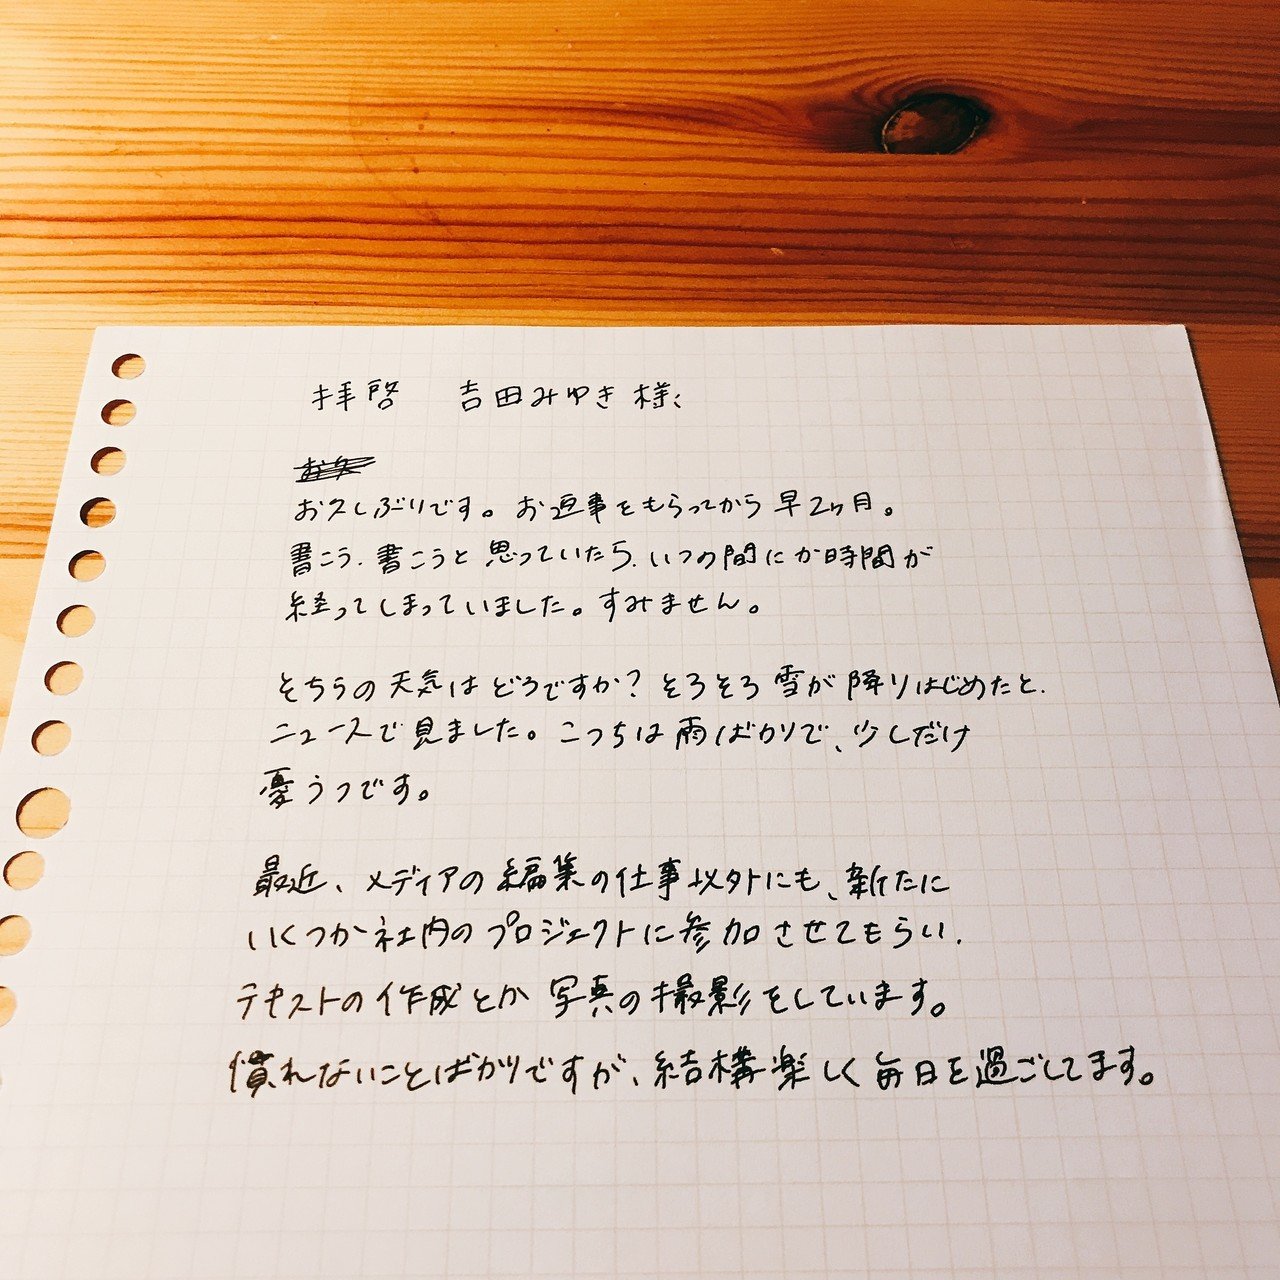 拝啓 吉田みゆき様、
お久
お久しぶりです。お返事をもらってから早2ヶ月。
書こう、書こうと思っていたら、いつの間にか時間が
経ってしまっていました。すみません。
そちらの天気はどうですか？そろそろ雪が降りはじめたと、
ニュースで見ました。こっちは雨ばかりで、少しだけ
憂うつです。
最近、メディアの編集の仕事以外にも、新たに
いくつか社内のプロジェクトに参加させてもらい、
テキストの作成とか写真の撮影をしています。
慣れないことばかりですが、結構楽しく毎日を過ごしてます。